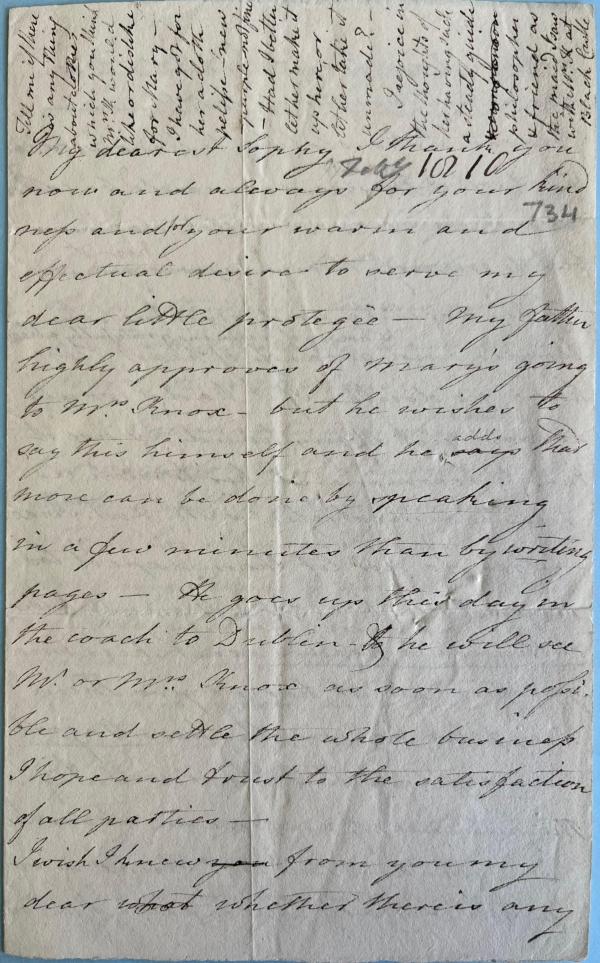 My dearest Sophy I thank you
July 1810
now and always for your kind
734
ness and for your warm and
effectual desire to serve my
dear little protegèe — My father
highly approves of Mary's going
to Mrs. Knox — but he wishes to
say this himself and he adds says that
more can be done by speaking
in a few minutes than by writing
pages — He goes up this day in
the coach to Dublin - & he will see
Mr. or Mrs. Knox as soon as possi-
ble and settle the whole business
I hope and trust to the satisfaction
of all parties —
I wish I knew you from you my
dear what whether there is any
Tell me if there
is any thing
about
which you think
Mrs. K would
like or dislike
for Mary —
I have got for
her a cloth
pelisse new
purple not fine
— Had I better
let her make it
up here or
let her take it
unmade? —
I rejoice in
the thoughts of
her having such
a steady guide
philosopher
& friend as
the maid I saw
with Mrs. K at
Black Castle